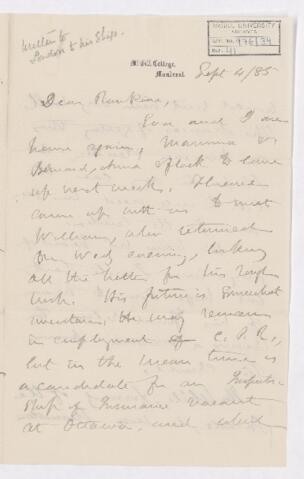 Written to
London to his Ship.
McGILL UNIVERSITY
ARCHIVES
ACC. NO. 976/34
McGill College,
Montreal.
Sept 4/85
Dear Rankine,
Eva and I are
home again, Mamma &
Bernard, Anna & flock to come
up next week. Florence
came up with us to meet
William, who returned
on Wed evening, looking
all the better for his rough
work. His future is somewhat
uncertain, he may remain
in employment of C. P. R.,
but in the mean time is
a candidate for an Inspector-
ship of Insurance vacant
at Ottawa, and which